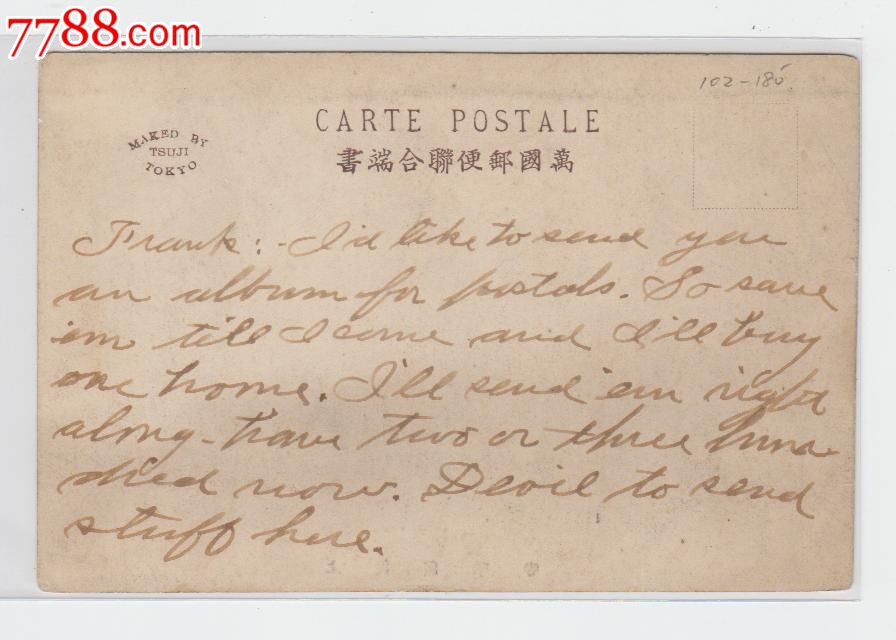 7788.com
102-185
CARTE POSTALE
MAKED BY
TSUJI
TOKYO
書端合聯便郵國萬
Frank:- I'd like to send you
an album for postals. So save
em till I come and I'll buy
one home. I'll send 'em right
along - have two or three hun-
dred now. Devil to send
stuff here.